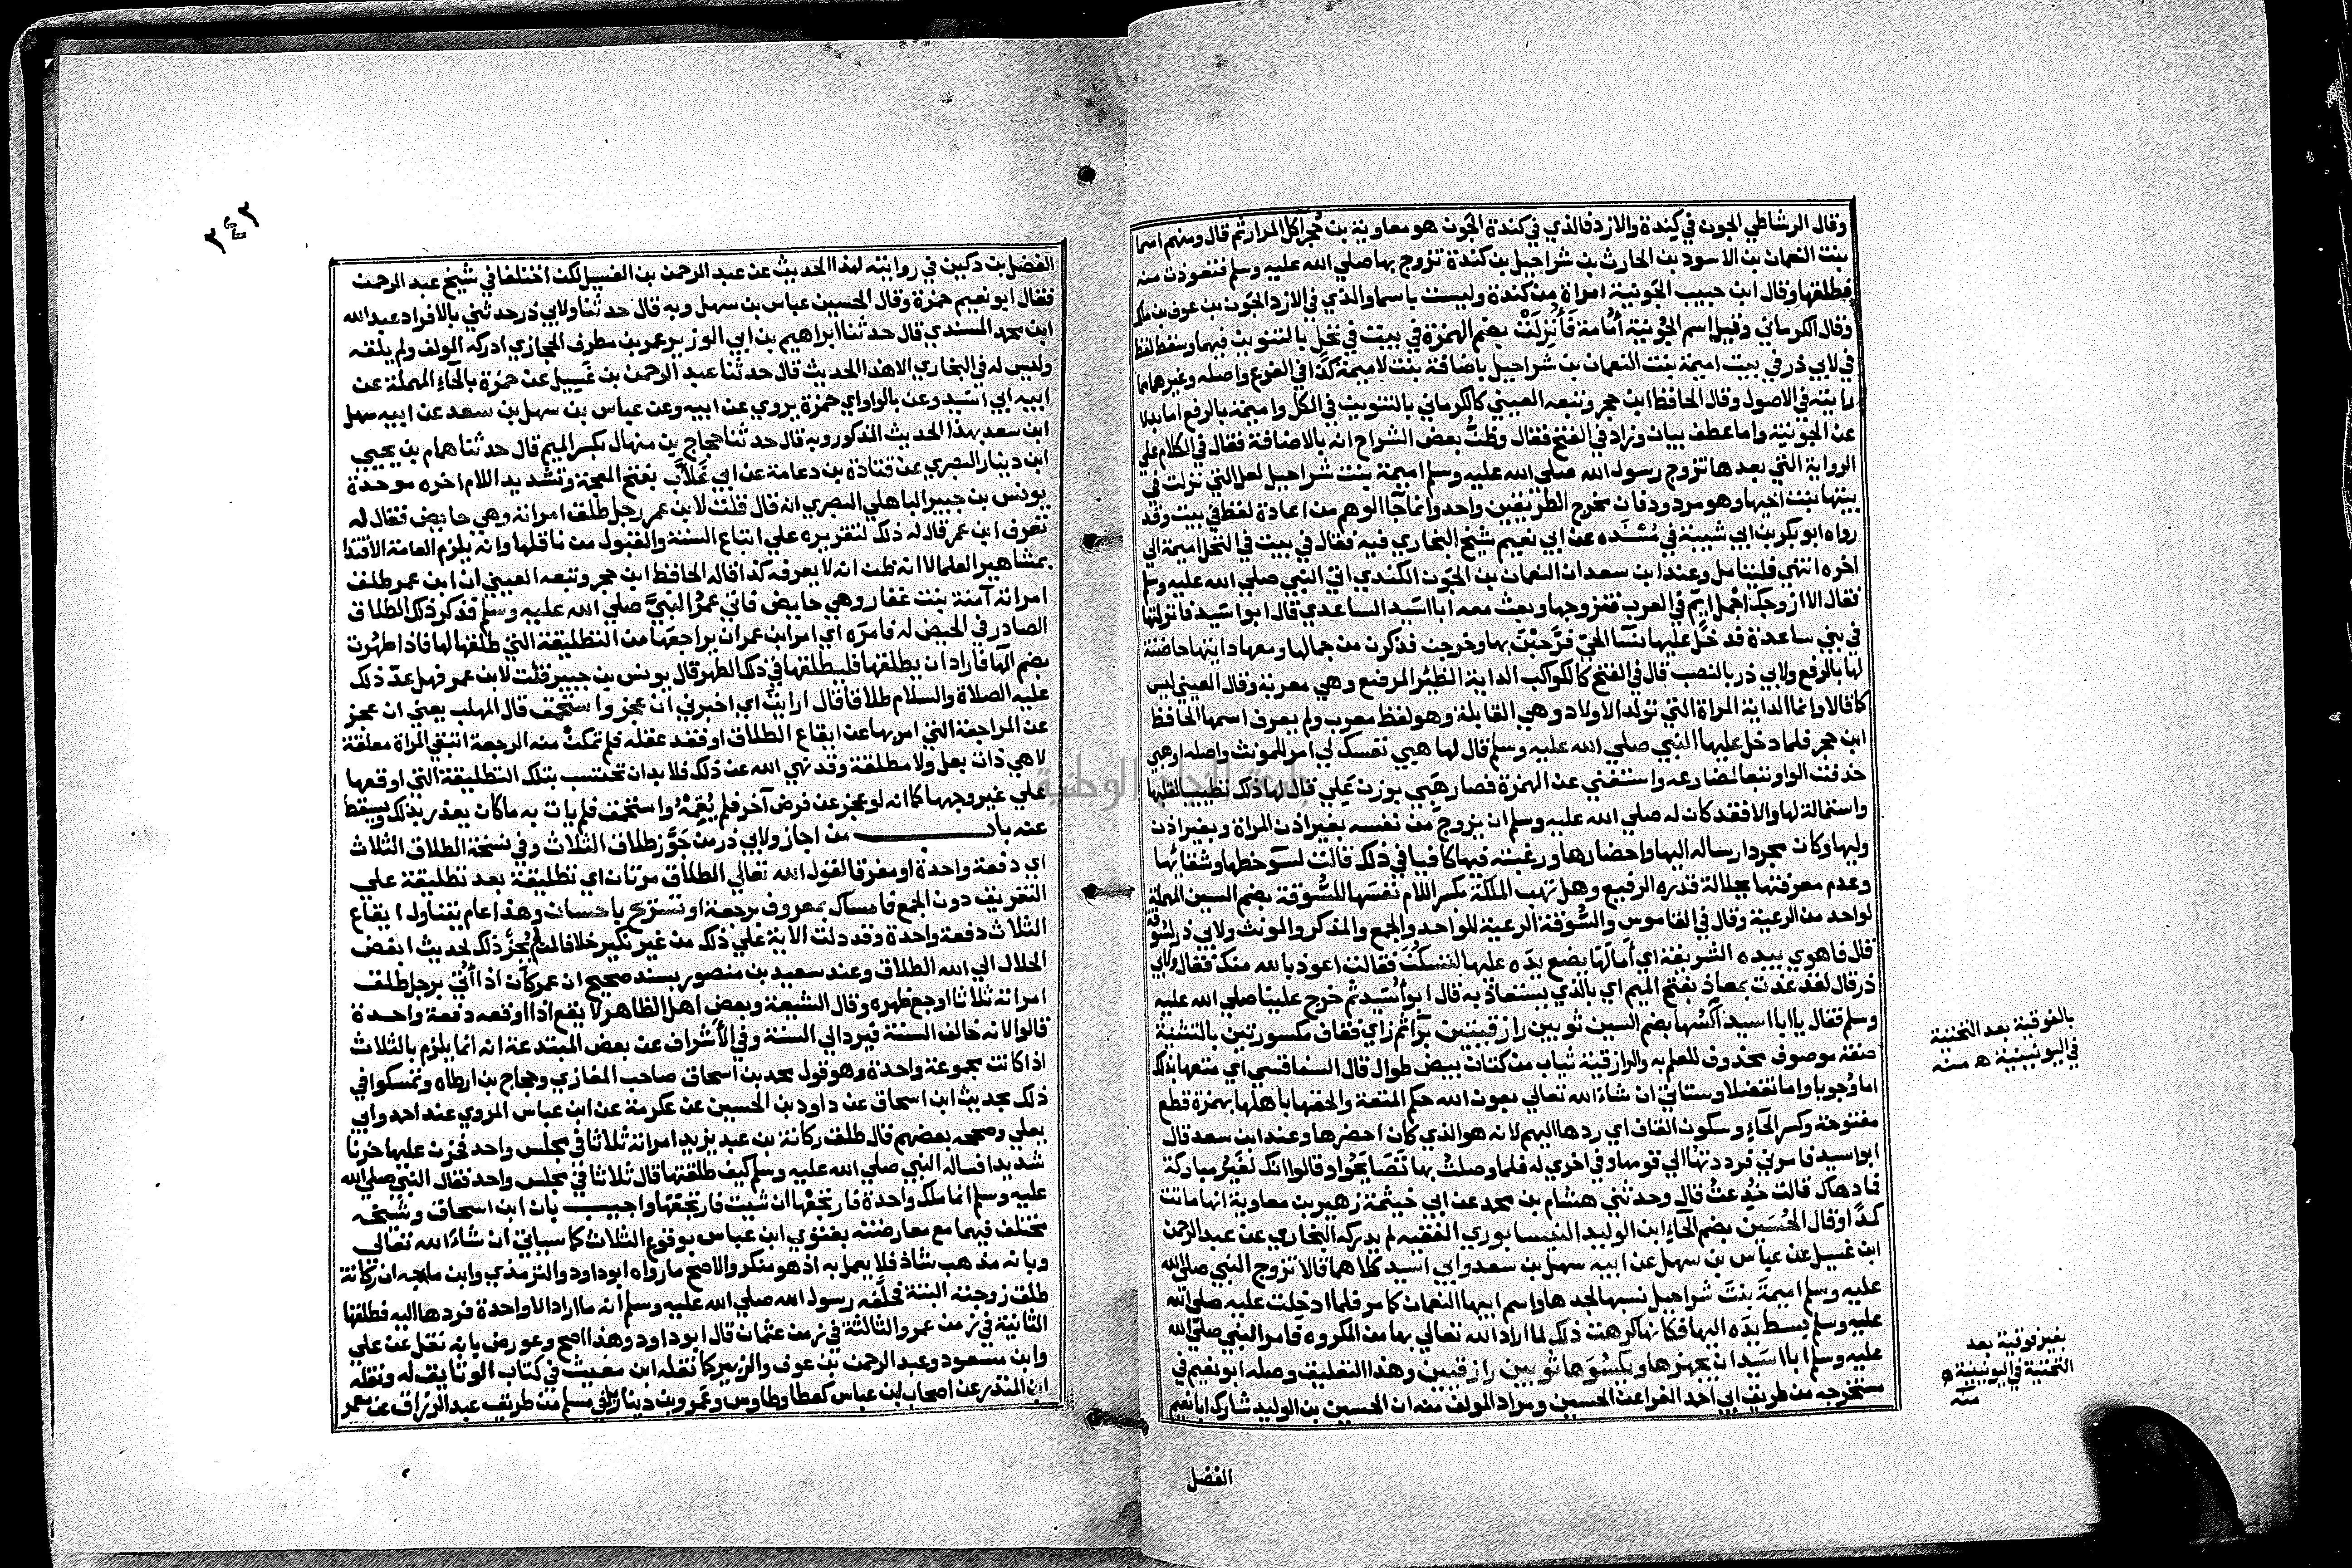 وقال الرشاطي الجون في كندة والازد فالذي في كندة الجَون هو معاوية بن حُجر اكل المرار ثم قال ومنهم اسما
بنت النعمان بن الاسود بن الحارث بن شراحيل بن كندة تزوج بها صلي الله عليه وسلم فتعوذت منه
فطلقها وقال ابن حبيب الجَونية امراة من كندة وليست باسما والذي في الازد الجَون بن عوف بن ملك
وقال الكرماني وقيل اسم الجَونية أُمامة فَأُنزِلَتْ بضم الهمزة في بيت في نخل بالتنوين فيهما وسقط لفظ
في لابي ذر في بيت اميمة بنت النعمان بن شراحيل باضافة بنت لاميمة كذا في الفرع واصله وغيرهما مما
رايته في الاصول وقال الحافظ ابن حجر وتبعه العيني كالكرماني بالتنوين في الكل واميمة بالرفع اما بدلا
عن الجونية واما عطف بيان وزاد في الفتح فقال وظنَّ بعض الشراح انه بالاضافة فقال في الكلام علي
الرواية التي بعدها تزوج رسول الله صلي الله عليه وسلم اميمة بنت شراحيل لعل التي نزلت في
بيتها بنت اخيها وهو مردود فان مخرج الطريقين واحد وانما جآ الوهم من اعادة لفظ في بيت وقد
رواه ابو بكر بن ابي شيبة في مُسْنَده عن ابي نعيم شيخ البخاري فيه فقال في بيت في النخل اميمة الي
اخره انتهي فليتامل وعند ابن سعد ان النعمان بن الجَون الكندي اتي النبي صلي الله عليه وسلم
فقال الا ازوجك اجْمل ايّم في العرب فتزوجها وبعث معه ابا اسَيد الساعدي قال ابو اسَيد فانزلتها
في بني ساعدة فدخل عليها نسآ الحيّ فرَحّبْنَ بها وخرجن فذكرن من جمالها ومعها دايتها حاضنة
لها بالرفع ولابي ذر بالنصب قال في الفتح كالكواكب الداية الظئر المرضع وهي معربة وقال العيني ليس
كما قالا وانما الداية المراة التي تولد الاولاد وهي القابلة وهو لفظ معرب ولم يعرف اسمها الحافظ
ابن حجر فلما دخل عليها النبي صلي الله عليه وسلم قال لها هبي نفسك لي امر للمونث واصله اوهبي
حذفت الواو تبعا لمضارعه واستغني عن الهمزة فصار هَبي بوزن عَلي قال لها ذلك تطييبا لقلبها
واستمالة لها والا فقد كان له صلي الله عليه وسلم ان يزوج من نفسه بغير اذن المراة وبغير اذن
وليها وكان مجرد ارساله اليها واحضارها ورغبته فيها كافيا في ذلك قالت لسوَ حظها وشقائها
وعدم معرفتها بجلالة قدره الرفيع وهل تهب الملكة بكسر اللام نفسَها للسُّوقة بضم السين المهملة
لواحد من الرعية وقال في القاموس والسُّوقة الرعية للواحد والجمع والمذكر والمونث ولابي ذر لسُوقة
قال فاهوي بيده الشريفة اي أمَالَها يضع يدَه عليها لتسكُنَ فقالت اعوذ بالله منك فقال ولابي
ذر قال لقد عُذت بمعاذ بفتح الميم اي بالذي يستعاذ به قال ابو أُسَيد ثم خرج علينا صلي الله عليه
وسلم فقال يا ابا اسيد أكسُها بضم السين ثوبين رازقيتين برآ ثم زاي فقاف مكسورتين بالتثنية
صفة موصوف محذوف للعلم به والرازقية ثياب من كتان بيض طوال قال السفاقسي اي متعها بذلك
اما وُجوبا واما تفضلا وستاتي ان شاءَ الله تعالي بعون الله حكم المتعة والحقها باهلها بهمزة قطع
مفتوحة وكسر الحآءِ وسكون القاف اي ردها اليهم لانه هو الذي كان احضرها وعند ابن سعد قال
ابو اسيد فامرني فرددتها الي قومها وفي اخري له فلما وصلتُ بها تَصَايَحُوا وقالوا انك لغيرُ مباركة
فما دهاك قالت خُدعتُ قال وحدثني هشام بن محمد عن ابي خيثمة زهير بن معاوية انها ماتت
كمدًا وقال الحُسَين بضم الحآءِ ابن الوليد النيسابوري الفقيه لم يدركه البخاري عن عبد الرحمن
ابن غسيل عن عباس بن سهل عن ابيه سهل بن سعد وابي اسَيد كلاهما قالا تزوج النبي صلي الله
عليه وسلم اميمةَ بنتَ شراحيل نسبها لجدها واسم ابيها النعمان كما مر فلما ادخلت عليه صلي الله
عليه وسلم بسط يدَه اليها فكانها كرهت ذلك لما اراد الله تعالي بها من المكروه فامر النبي صلي الله
عليه وسلم ابا اسَيد ان يجهزها ويكسُوَها ثوبين رازقيين وهذا التعليق وصله ابو نعيم في
مستخرجه من طريق ابي احمد الفراء عن الحسين ومراد المولف منه ان الحسين بن الوليد شارك ابا نعيم
بالفوقية بعد التحتية
في اليونينية ه منه
بغير فوقية بعد
التحتية في اليونينية ه
منه
الفضل
٢٤٢
الفضل بن دكين في روايته لهذا الحديث عن عبد الرحمن بن الغسيل لكن اختلفا في شيخ عبد الرحمن
فقال ابو نعيم حمزة وقال الحسين عباس بن سهل وبه قال حدثنا ولابي ذر حدثني بالافراد عبد الله
ابن محمد المسندي قال حدثنا ابراهيم بن ابي الوزير عمر بن مطرف الحجازي ادركه المولف ولم يلقه
وليس له في البخاري الا هذا الحديث قال حدثنا عبد الرحمن بن غَسِيل عن حمزة بالحآءِ المهملة عن
ابيه ابي اسَيد وعن بالواو اي حمزة يروي عن ابيه وعن عباس بن سهل بن سعد عن ابيه سهل
ابن سعد بهذا الحديث المذكور وبه قال حدثنا حجاج بن منهال بكسر الميم قال حدثنا همام بن يحيي
ابن دينار البصري عن قتادة بن دعامة عن ابي غَلَّاب بفتح المعجمة وتشديد اللام اخره موحدة
يونس بن جبير الباهلي البصري انه قال قلت لابن عمر رجل طلق امراته وهي حايض فقال له
تعرف ابن عمر قال له ذلك لتقريره علي اتباع السنة والقبول من ناقلها وانه يلزم العامة الاقتدا
بمشاهير العلما لا انه ظن انه لا يعرفه كذا قاله الحافظ ابن حجر وتبعه العيني ان ابن عمر طلق
امراته آمنة بنت غفار وهي حايض فاتي عمرُ النبيَّ صلي الله عليه وسلم فذكر ذلك الطلاق
الصادر في الحيض له فامرَه اي امر ابن عمر ان يراجعَها من التطليقة التي طلقها لها فاذا طهُرت
بضم الها فاراد ان يطلقها فليطلقها في ذلك الطهر قال يونس بن جبير قلت لابن عمر فهل عدّ ذلك
عليه الصلاة والسلام طلاقا قال ارايتَ اي اخبرني ان عجز واستحمق قال المهلب يعني ان عجز
عن المراجعة التي امر بها عن ايقاع الطلاق او فقد عقله فلم تمكنْ منه الرجعة اتبقي المراة معلقة
لا هي ذات بعل ولا مطلقة وقد نهي الله عن ذلك فلا بد ان تحتسب بتلك التطليقة التي اوقعها
علي غير وجهها كما انه لو عجز عن فرض آخر فلم يُقِمْهُ واستحمق فلم يات به ما كان يعذر بذلك ويسقط
عنه باب من اجاز ولابي ذر من جَوَّز طلاق الثلاث وفي نسخة الطلاق الثلاث
اي دفعة واحدة او مفرقا لقول الله تعالي الطلاق مرتان اي تطليقة بعد تطليقة علي
التفريق دون الجمع فامساك بمعروف برجعة او تسريح باحسان وهذا عام يتناول ايقاع
الثلاث دفعة واحدة وقد دلت الآية علي ذلك من غير نكير خلافا لمن لم يُجز ذلك لحديث ابغض
الحلال الي الله الطلاق وعند سعيد بن منصور بسند صحيح ان عمر كان اذا أُتي برجل طلق
امراته ثلاثا اوجع ظهره وقال الشيعة وبعض اهل الظاهر لا يقع اذا اوقعه دفعة واحدة
قالوا لانه خالف السنة فيرد الي السنة وفي الأشراف عن بعض المبتدعة انه انما يلزم بالثلاث
اذا كانت مجموعة واحدة وهو قول محمد بن اسحاق صاحب المغازي وحجاج بن ارطاه وتمسكوا في
ذلك بحديث ابن اسحاق عن داود بن الحسين عن عكرمة عن ابن عباس المروي عند احمد وابي
يعلي وصححه بعضهم قال طلق ركانة بن عبد يزيد امراته ثلاثا في مجلس واحد فحزن عليها حزنا
شديدا فساله النبي صلي الله عليه وسلم كيف طلقتها قال ثلاثا في مجلس واحد فقال النبي صلي الله
عليه وسلم انما ملك واحدة فارتجعْها ان شيت فارتجعَها واجيب بان ابن اسحاق وشيخه
مختلف فيهما مع معارضته بفتوي ابن عباس بوقوع الثلاث كما سياتي ان شاءَ الله تعالي
وبانه مذهب شاذ فلا يعمل به اذ هو منكر والاصح ما رواه ابو داود والترمذي وابن ماجه ان ركانة
طلق زوجته البتة فحلَّفه رسول الله صلي الله عليه وسلم انه ما اراد الا واحدة فردها اليه فطلقها
الثانية في زمن عمر والثالثة في زمن عثمان قال ابو داود وهذا اصح وعورض بانه نقل عن علي
وابن مسعود وعبد الرحمن بن عوف والزبير كما نقله ابن مغيث في كتاب الوثايق له ونقله
ابن المنذر عن اصحاب ابن عباس كعطا وطاوس وعمرو بن دينار وفي مسلم من طريق عبد الرزاق عن معمر
جامعة النجاح الوطنية